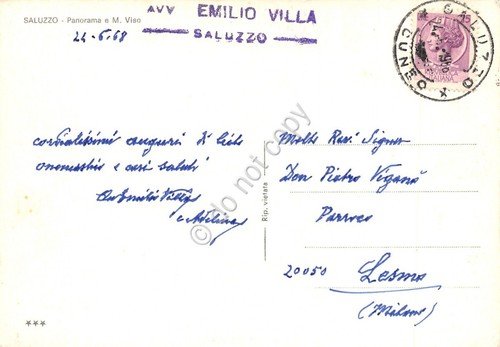 SALUZZO - Panorama e M. Viso
24-6-68
AVV EMILIO VILLA
SALUZZO
SALUZZO
CUNEO
cordialissimi auguri di lieto
onomastico e cari saluti
Emilio Villa
e Adelina
Rip. vietata
Molto Rev. Signor
Don Pietro Viganò
Parroco
20050 Lesmo
(Milano)
***
do not copy